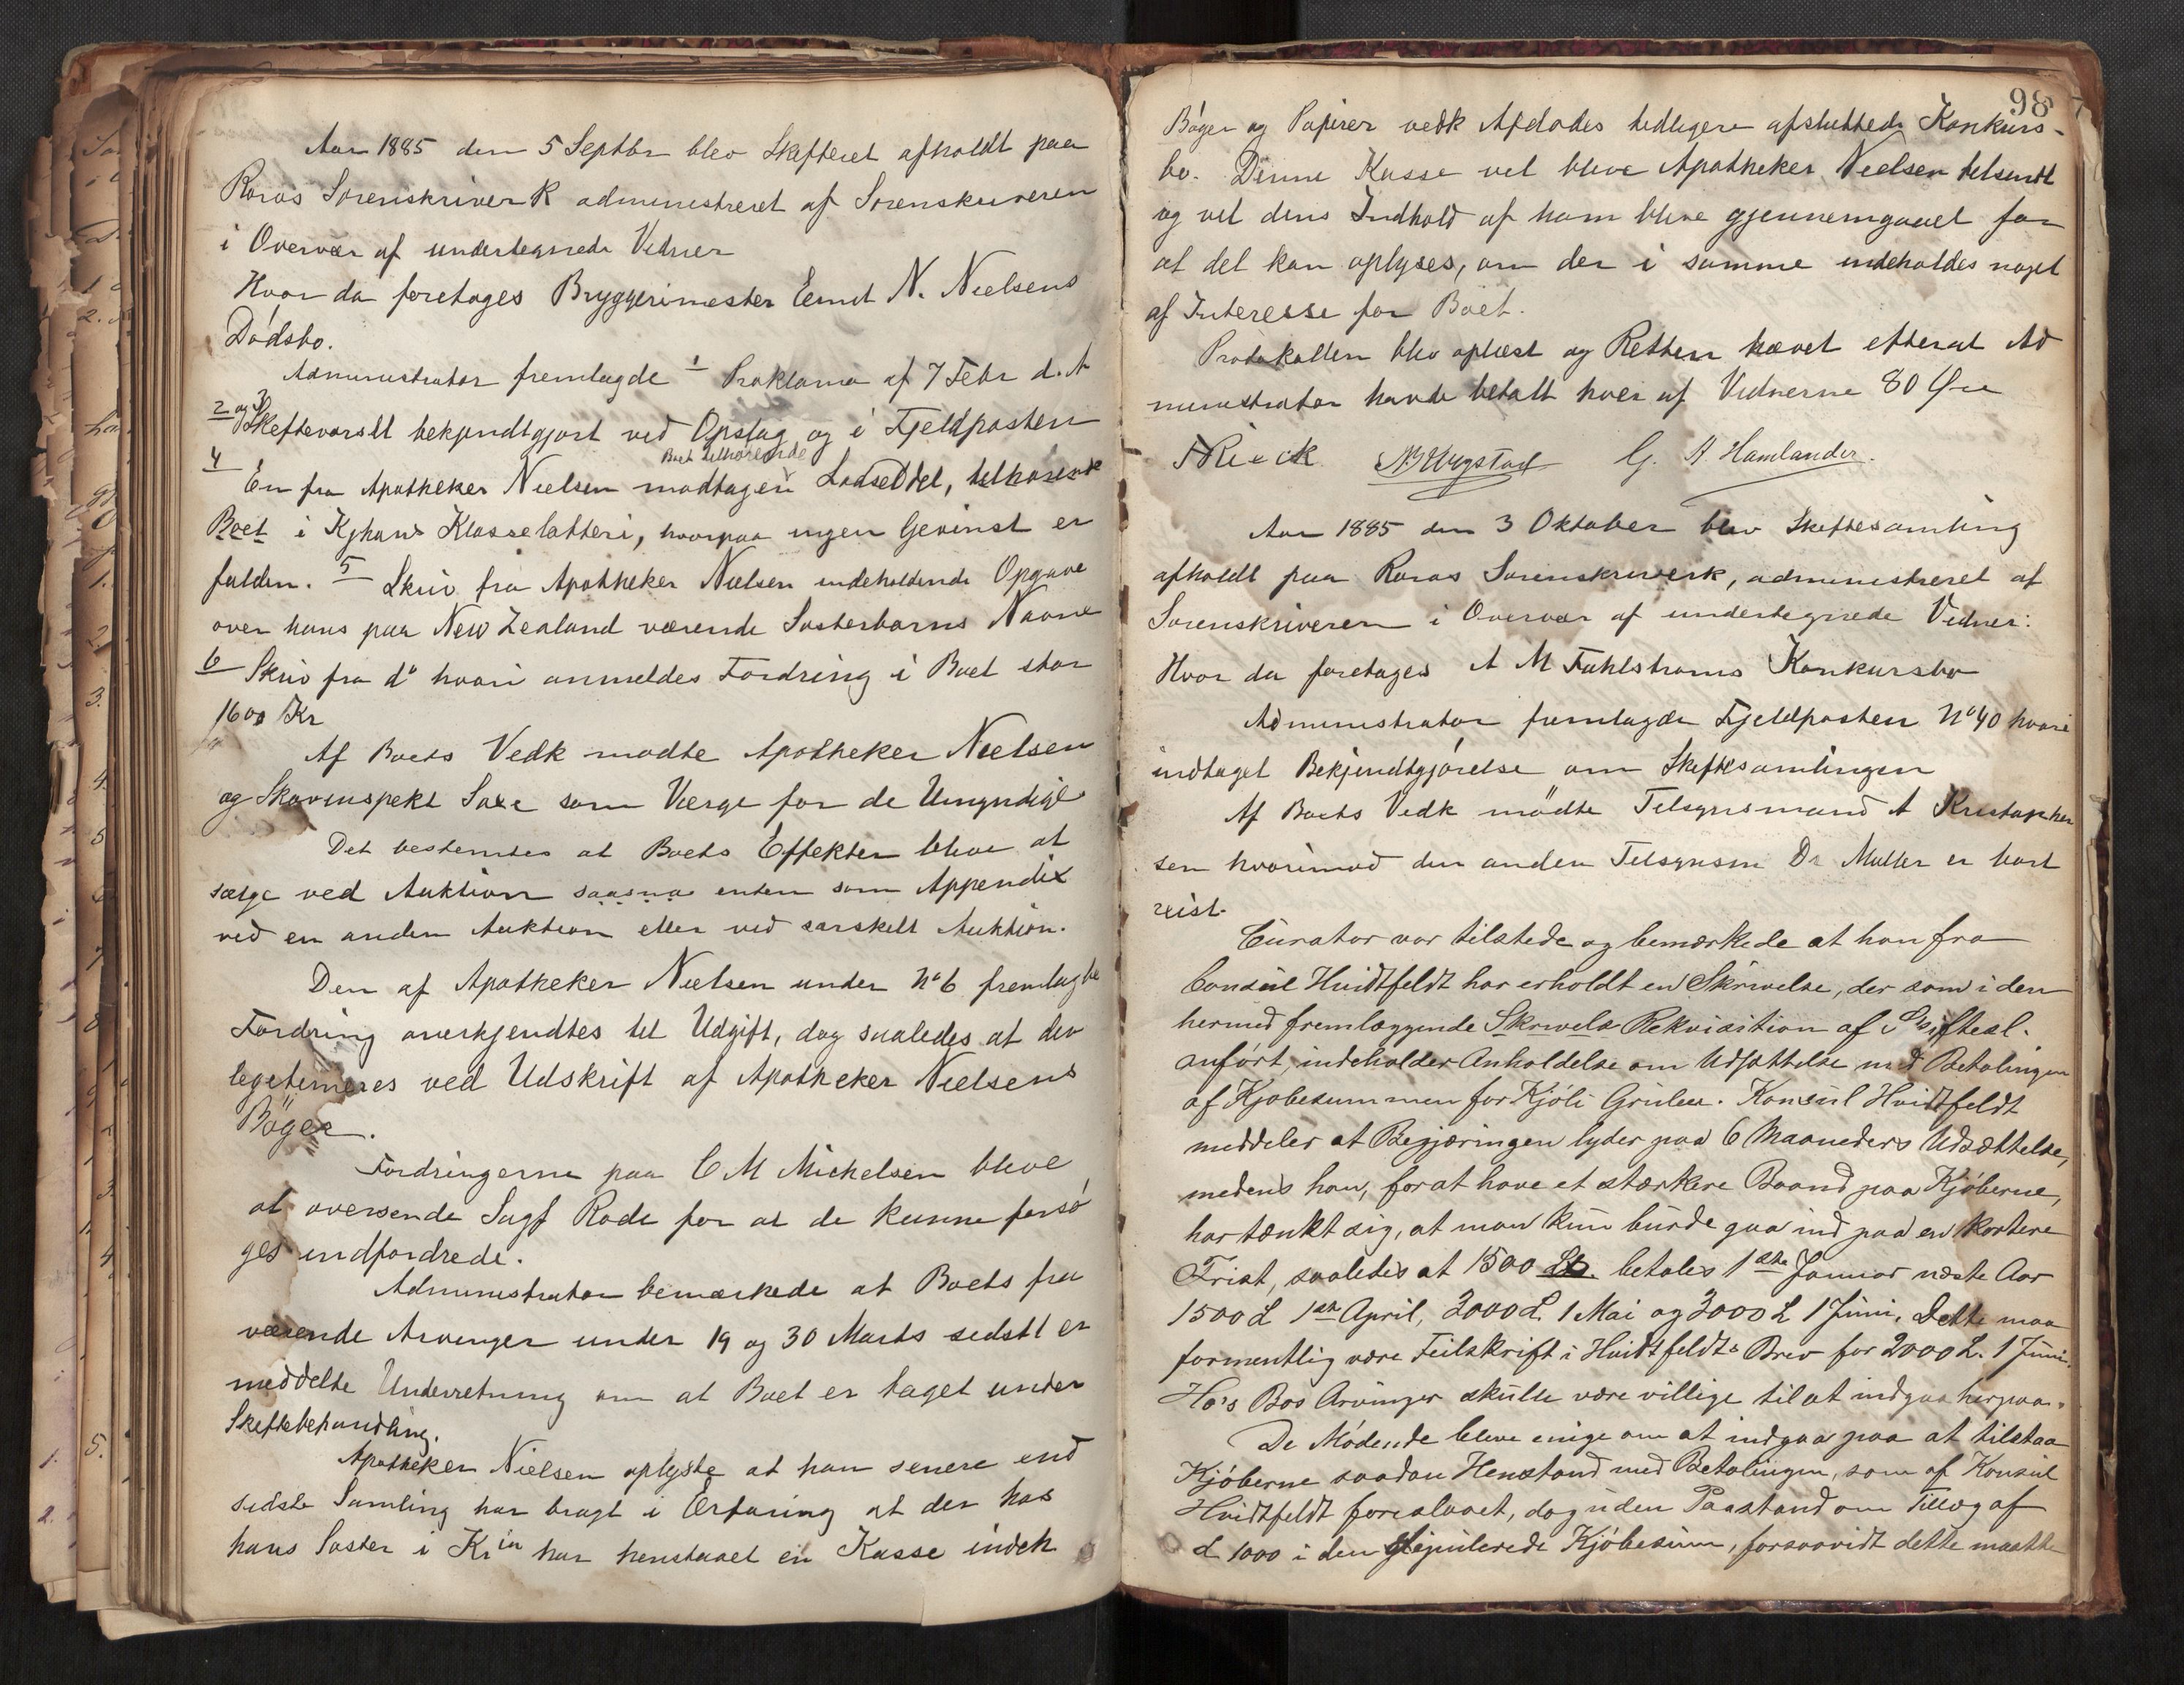 Aar 1885 den 5 Septbr blev Skifteret afholdt paa
Røros Sorenskriver K administreret af Sorenskriveren
i Overvær af undertegnede Vidner
Hvor da foretoges Bryggerimester Ernst N. Nielsens
Dødsbo.
Administrator fremlagde 1 Proklama af 7 Febr d. A
2 og 3 Skiftevarsel bekjendtgjort ved Opslag og i Fjeldposten
4 En fra Apotheker Nielsen modtagen Boet tilhørende Lodseddel, tilhørende
Boet i Kjhavns Klasselotteri, hvorpaa ingen Gevinst er
falden. 5 Skriv fra Apotheker Nielsen indeholdende Opgave
over hans paa New Zealand værende Søsterbarns Navne
6 Skriv fra do hvori anmeldes Fordring i Boet stor
1600 Kr
Af Boets Vedk mødte Apotheker Nielsen
og Skovinspekt Saxe som Værge for de Umyndige
Det bestemtes at Boets Effekter blive at
sælge ved Auktion saasna enten som Appendix
ved en anden Auktion eller ved særskilt Auktion.
Den af Apotheker Nielsen under No 6 fremlagte
Fordring anerkjendtes til Udgift, dog saaledes at den
legitimeres ved Udskrift af Apotheker Nielsens
Bøger.
Fordringerne paa C M Mickelsen blive
at oversende Sagf Rode for at de kunne forsø
ges indfordrede.
Administrator bemærkede at Boets fra
værende Arvinger under 19 og 30 Marts sidstl er
meddelte Underretning om at Boet er taget under
Skiftebehandling.
Apotheker Nielsen oplyste at han senere end
sidste Samling har bragt i Erfaring at der hos
hans Søster i Kr ia har henstaaet en Kasse indeh
98
Bøger og Papirer vedk Afdødes tidligere afsluttede Konkurs-
bo. Denne Kasse vil blive Apotheker Nielsen tilsendt
og vil dens Indhold af ham blive gjennemgaaet for
at det kan oplyses, om der i samme indeholdes noget
af Interesse for Boet.
Protokollen blev oplæst og Retten hævet efterat Ad
ministrator havde betalt hver af Vidnerne 80 Øre
Rieck G. A Hamlander.
Aar 1885 den 3 Oktober blev Skiftesamling
afholdt paa Røros Sorenskriverk, administreret af
Sorenskriveren i Overvær af undertegnede Vidner:
Hvor da foretoges A M Fahlstrøms Konkursbo
Administrator fremlagde Fjeldposten No 40 hvori
indtaget Bekjendtgjørelse om Skiftesamlingen
Af Boets Vedk mødte Tilsynsmand A Kristopher
sen hvorimod den anden Tilsynsm Dr Müller er bort
reist.
Curator var tilstede og bemærkede at han fra
Consul Huidtfeldt har erholdt en Skrivelse, der som i den
hermed fremlæggende Skrivels Rekvisition af Skifteal.
anført, indeholder Anholdelse om Udsættelse med Betalingen
af Kjøbesummen for Kjøli Gruber. Konsul Huidtfeldt
meddeler at Begjæringen lyder paa 6 Maaneders Udsættelse,
medens han, for at have et stærkere Baand paa Kjøberne,
har tænkt sig, at man kun burde gaa ind paa en kortere
Frist, saaledes at 1500 £. betales 1ste Januar næste Aar
1500 £ 1ste April, 3000 £ 1 Mai og 3000 £ 1 Juni. Dette maa
formentlig være Feilskrift i Huidtfeldts Brev for 2000 £. 1 Juni.
Ho's Bos Arvinger skulle være villige til at indgaa herpaa.
De Mødende bleve enige om at indgaa paa at tilstaa
Kjøberne saadan Henstand med Betalingen, som af Konsul
Huidtfeldt foreslaaet, dog uden Paastand om Tillæg af
£ 1000 i den stipulerede Kjøbesum, forsaavidt dette maatte